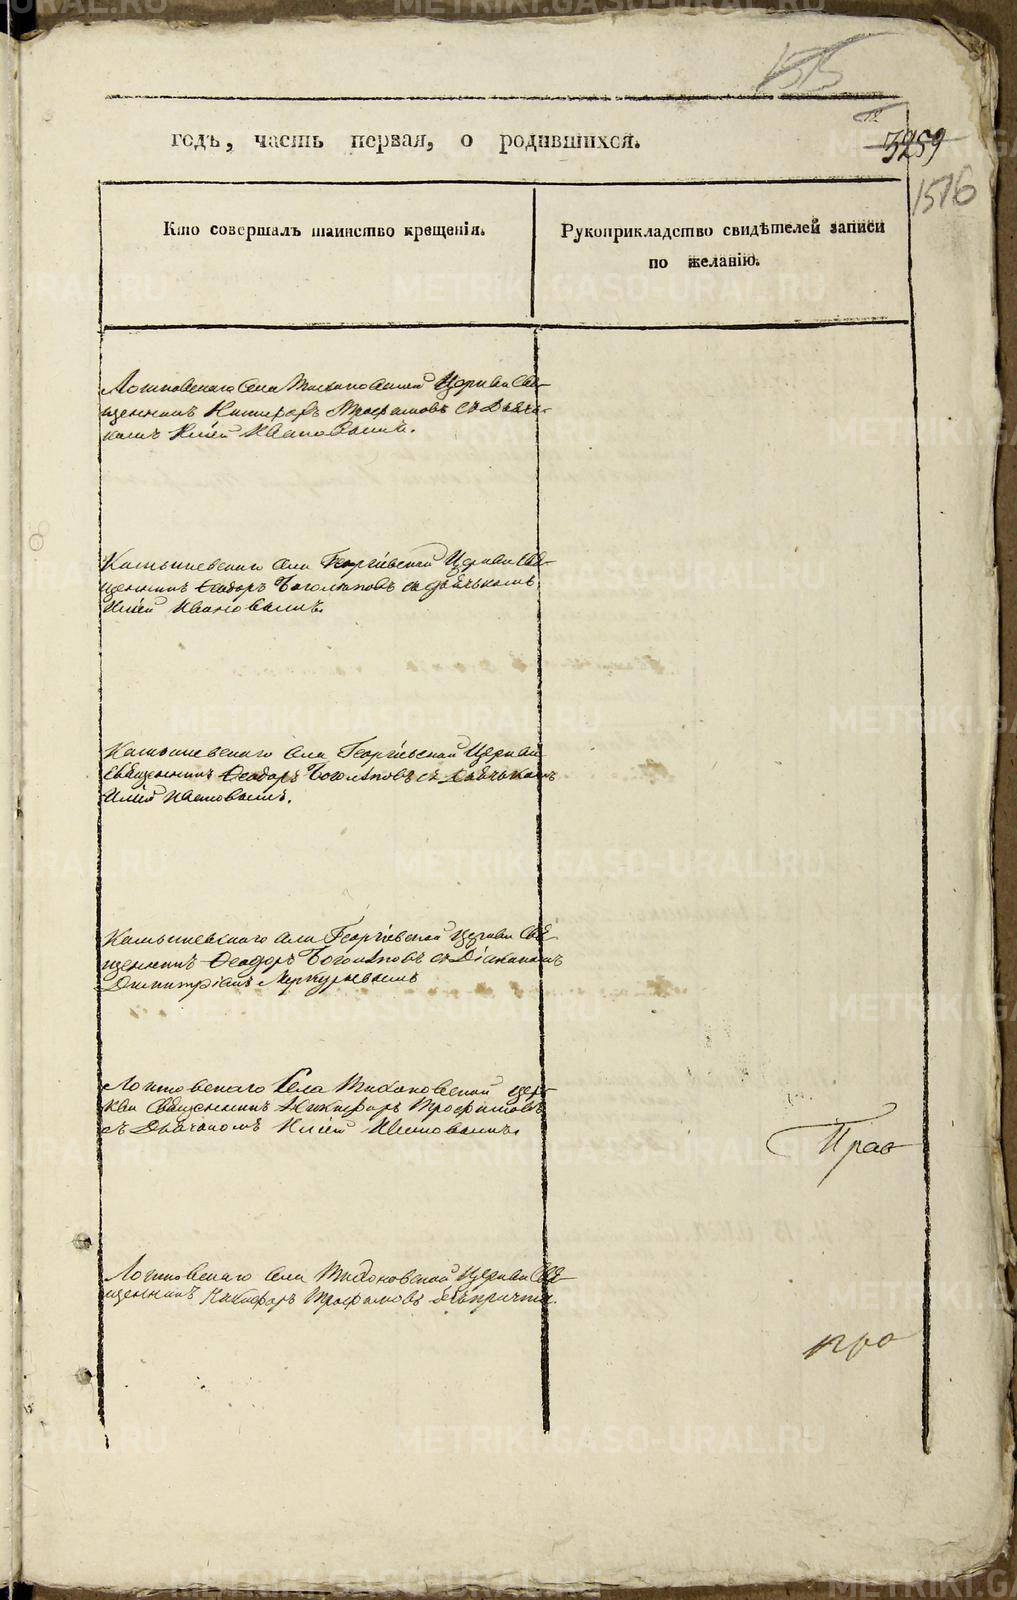 METRIKI.GASO-URAL.RU
1515
годъ, часть первая, о родившихся.
3259
1516
Кто совершалъ таинство крещенія.
Рукоприкладство свидѣтелей записи
по желанію.
села Церкви Свя-
щенникъ Никифоръ Трофимовъ съ Дьячь-
комъ Иліей Ивановымъ.
Камышевскаго села Георгіевской Церкви Свя-
щенникъ Ѳеодоръ Боголѣповъ съ дьячькомъ
Иліей Ивановымъ.
Камышевскаго села Георгіевской Церкви
Священникъ Ѳеодоръ Боголѣповъ съ Дьячькомъ
Иліей Ивановымъ.
Камышевскаго села Георгіевской Церкви Свя-
щенникъ Ѳеодоръ Боголѣповъ съ Діакономъ
Димитріемъ Меркурьевымъ
Села Тихоновской Цер-
кви Священникъ Никифоръ Трофимовъ
съ Дьячкомъ Иліей Ивановымъ.
Прав
села Тихоновской Церкви Свя-
щенникъ Никифоръ Трофимовъ безъ причта.